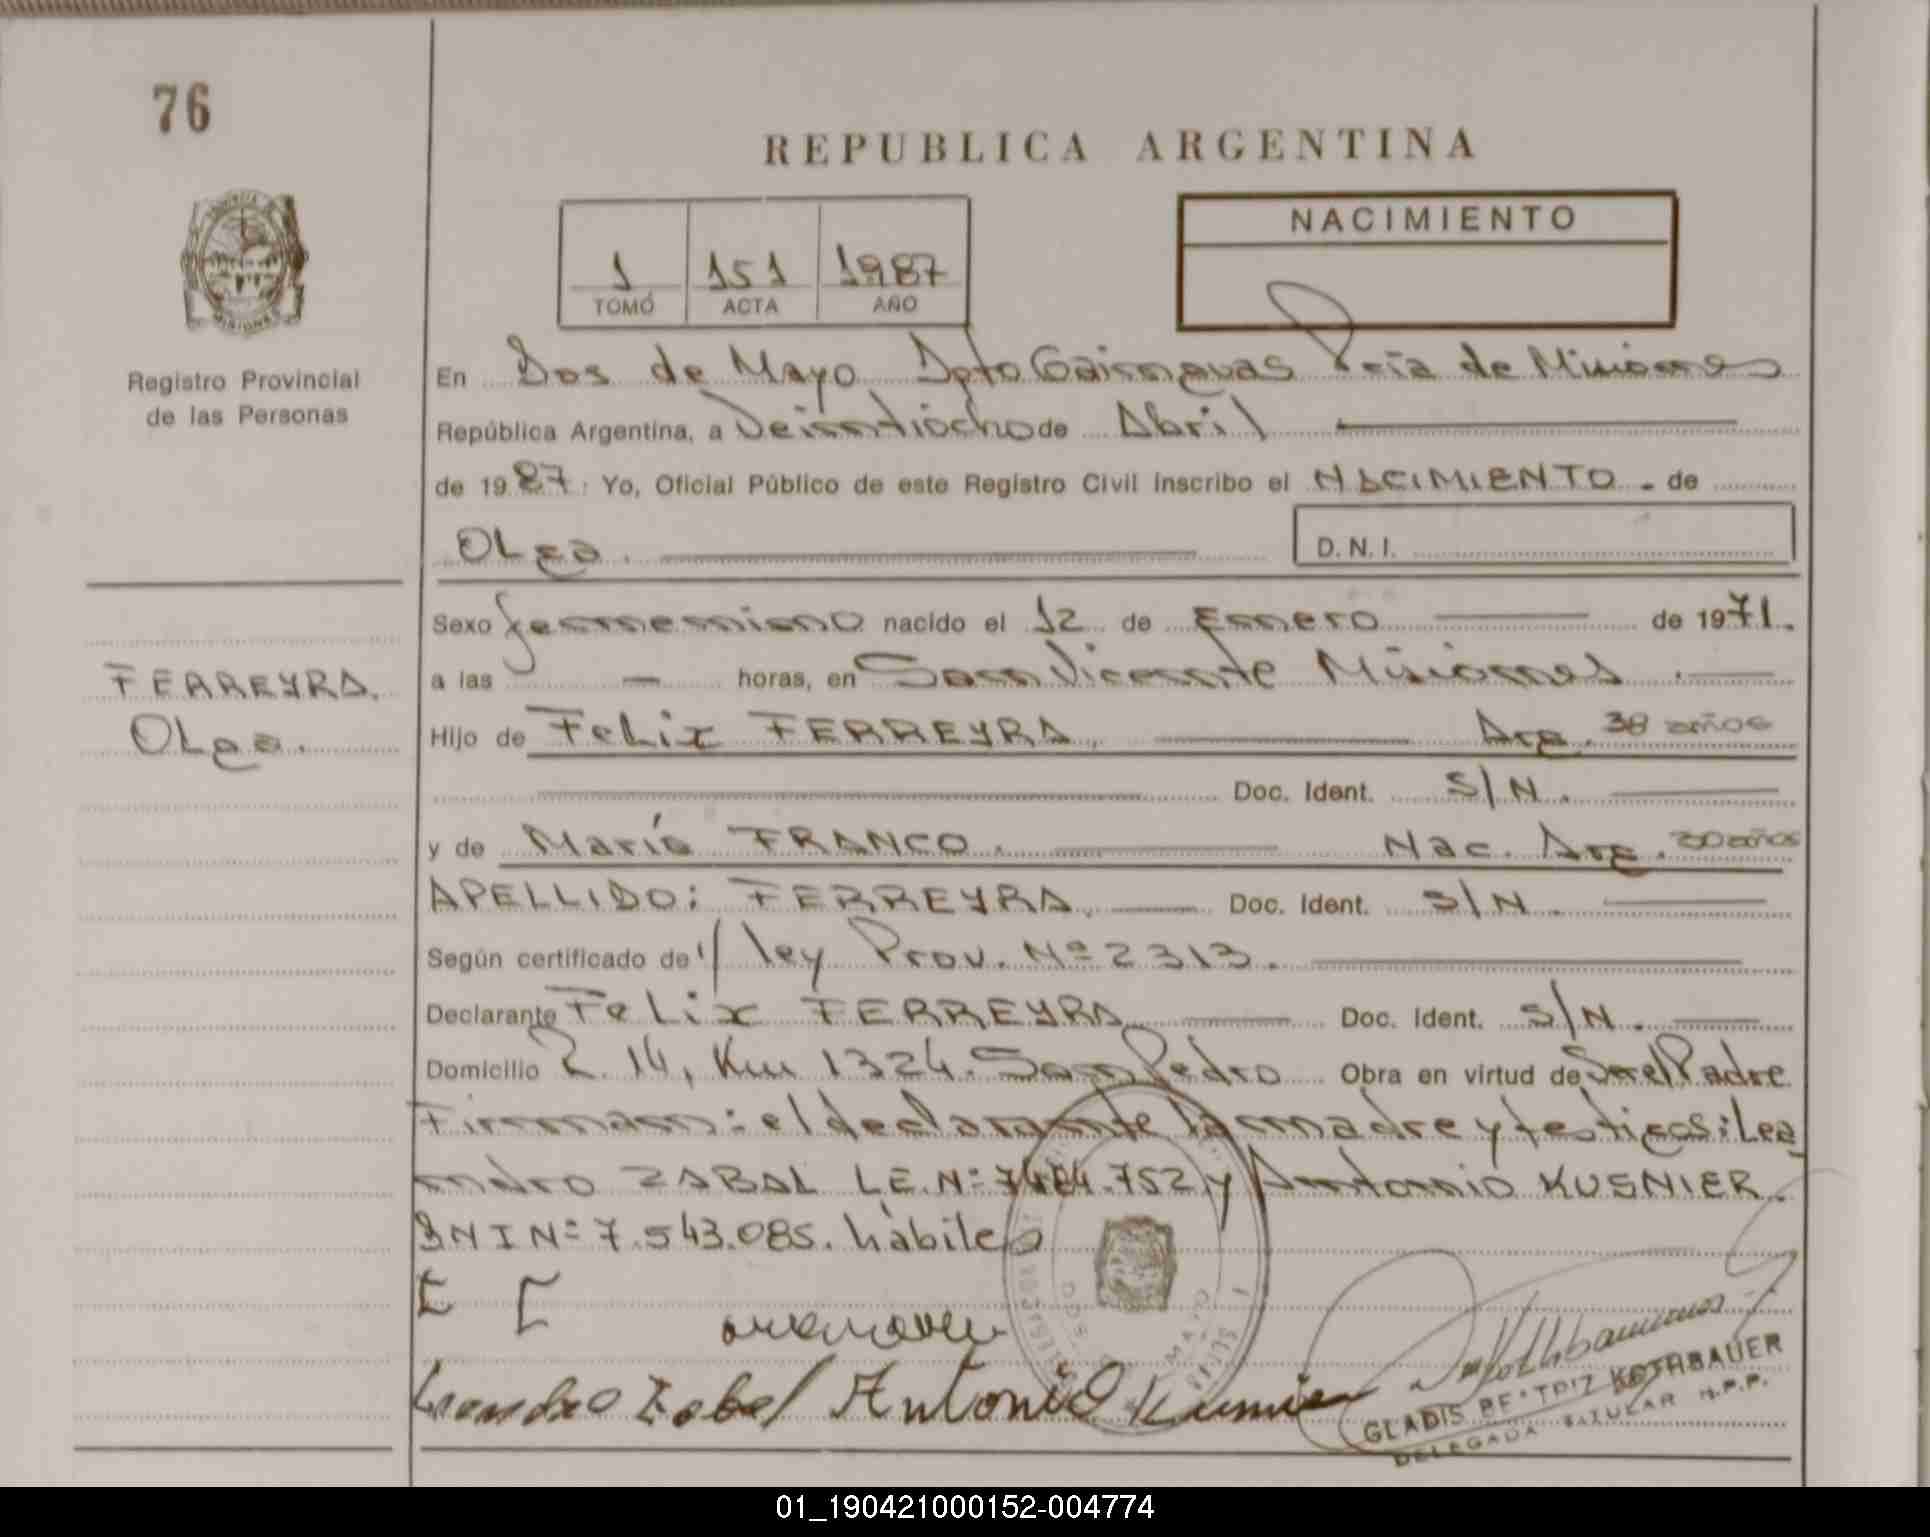 76
REPUBLICA ARGENTINA
NACIMIENTO
1 151 1987
TOMO ACTA AÑO
Registro Provincial
de las Personas
En Dos de Mayo Dpto Cainguas Pcia de Misiones
República Argentina, a Veintiocho de Abril
de 1987. Yo, Oficial Público de este Registro Civil inscribo el NACIMIENTO. de
Olga.
D.N.I.
FERREYRA.
Olga.
Sexo femenino nacido el 12 de Enero de 1971.
a las — horas, en San Vicente Misiones.
Hijo de Felix FERREYRA. Arg. 38 años
Doc. Ident. S/N.
y de María FRANCO. Nac. Arg. 30 años
APELLIDO: FERREYRA. Doc. Ident. S/N.
Según certificado de ley Prov. Nº 2313.
Declarante Felix FERREYRA Doc. Ident. S/N.
Domicilio R. 14, Km 1324. San Pedro Obra en virtud de Ser el Padre
Firman: el declarante la madre y testigos: Lea
ndro ZABAL L.E. Nº 7484.752 y Antonio KUSNIER.
DNI Nº 7.543.085. hábiles
Leandro Zabal Antonio Kusnier
GLADIS BEATRIZ KOTHBAUER
DELEGADA TITULAR R.P.P.
DOS MAYO
MISIONES
01_190421000152-004774